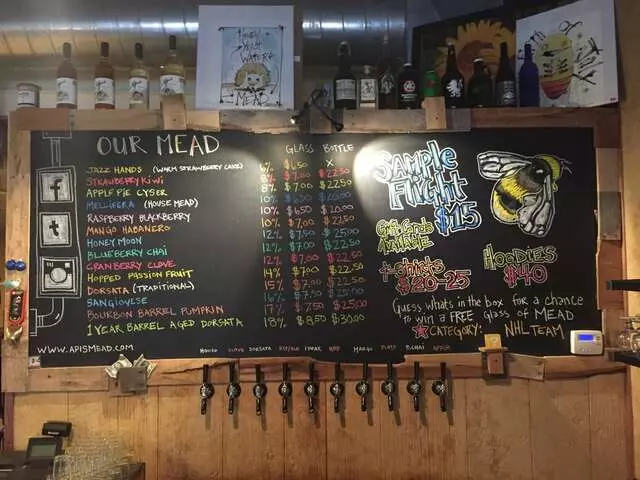 HONEY
YEAST
WATER
MEAD
OUR MEAD
GLASS BOTTLE
JAZZ HANDS (WARM STRAWBERRY CAKE) 6% $6.50 X
STRAWBERRY KIWI 8% $7.00 $22.50
APPLE PIE CYSER 8% $7.00 $22.50
MELLIFERA (HOUSE MEAD) 10% $6.50 $20.00
RASPBERRY BLACKBERRY 10% $6.50 $20.00
MANGO HABANERO 10% $7.00 $23.50
HONEY MOON 12% $7.50 $25.00
BLUEBERRY CHAI 12% $7.00 $22.50
CRANBERRY CLOVE 12% $7.00 $22.50
HOPPED PASSION FRUIT 14% $7.00 $22.50
DORSATA (TRADITIONAL) 15% $7.00 $22.50
SANGIOVESE 16% $7.50
BOURBON BARREL PUMPKIN 17% $7.50 $25.00
1 YEAR BARREL AGED DORSATA 18% $8.50 $30.00
WWW.APISMEAD.COM
SAMPLE
FLIGHT
$15
Gift Cards
AVAILABLE
T-SHIRTS
$20-25
HOODIES
$40
Guess whats in the box for a chance
to win a FREE Glass of MEAD
CATEGORY: NHL TEAM
HOUSE CLOVE DORSATA MANGO B.CHAI
f
t